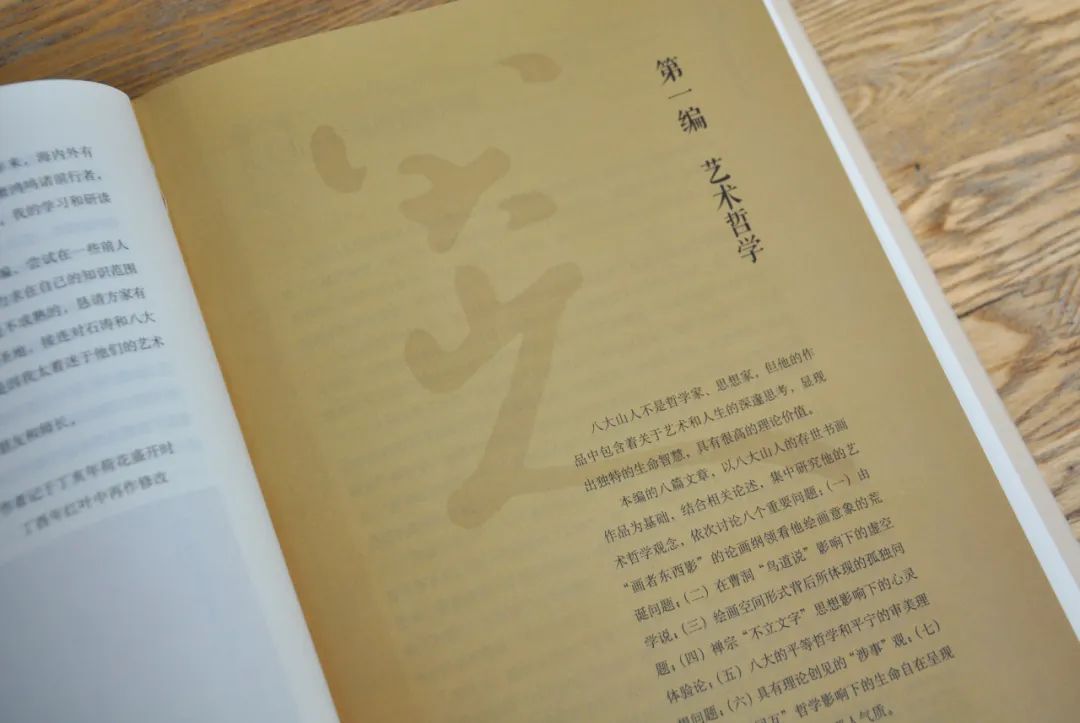 来，海内外有
鸿鸣诸前行者，
，我的学习和研读
编，尝试在一些前人
力求在自己的知识范围
不成熟的，恳请方家有
圣地，接连对石涛和八大
是因我太着迷于他们的艺术
朋友相助长。
作者记于丁亥年荷花盛开时
丁酉年红叶中再作修改
第一编 艺术哲学
八大山人不是哲学家、思想家，但他的作
品中包含着关于艺术和人生的深邃思考，显现
出独特的生命智慧，具有很高的理论价值。
本编的八篇文章，以八大山人的存世书画
作品为基础，结合相关论述，集中研究他的艺
术哲学观念，依次讨论八个重要问题：（一）由
“画者东西影”的论画纲领看他绘画意象的荒
诞问题；（二）在曹洞“鸟道说”影响下的虚空
学说；（三）绘画空间形式背后所体现的孤独问
题；（四）禅宗“不立文字”思想影响下的心灵
体验论；（五）八大的平等哲学和平宁的审美理
想问题；（六）具有理论创见的“涉事”观；（七）
”哲学影响下的生命自在呈现
人气质。